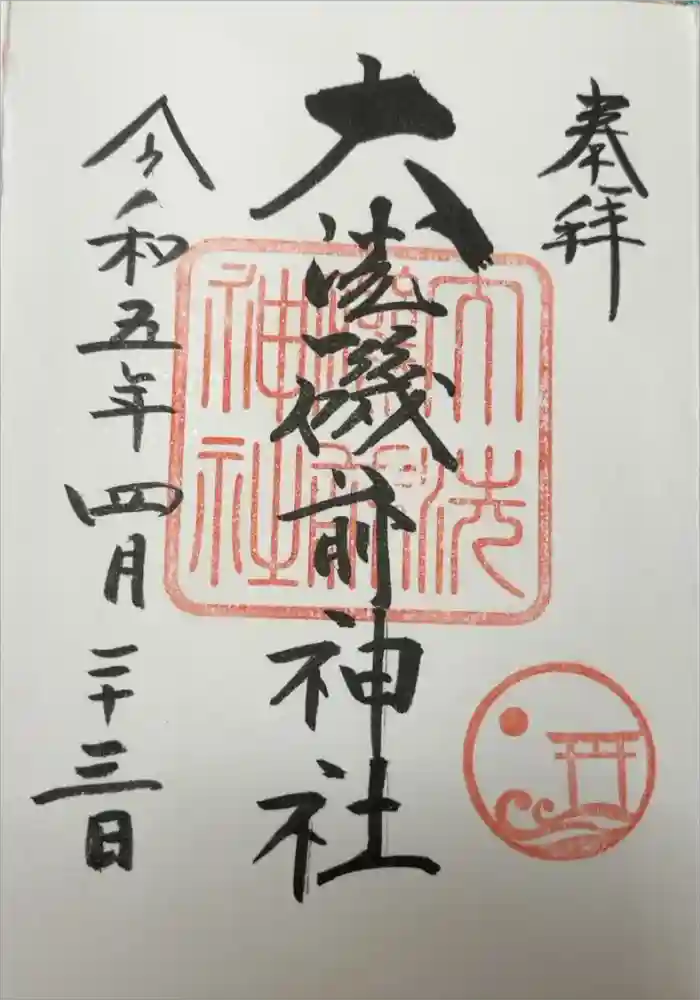 奉拝
大洗磯前神社
大洗磯前神社
令和五年四月二十三日